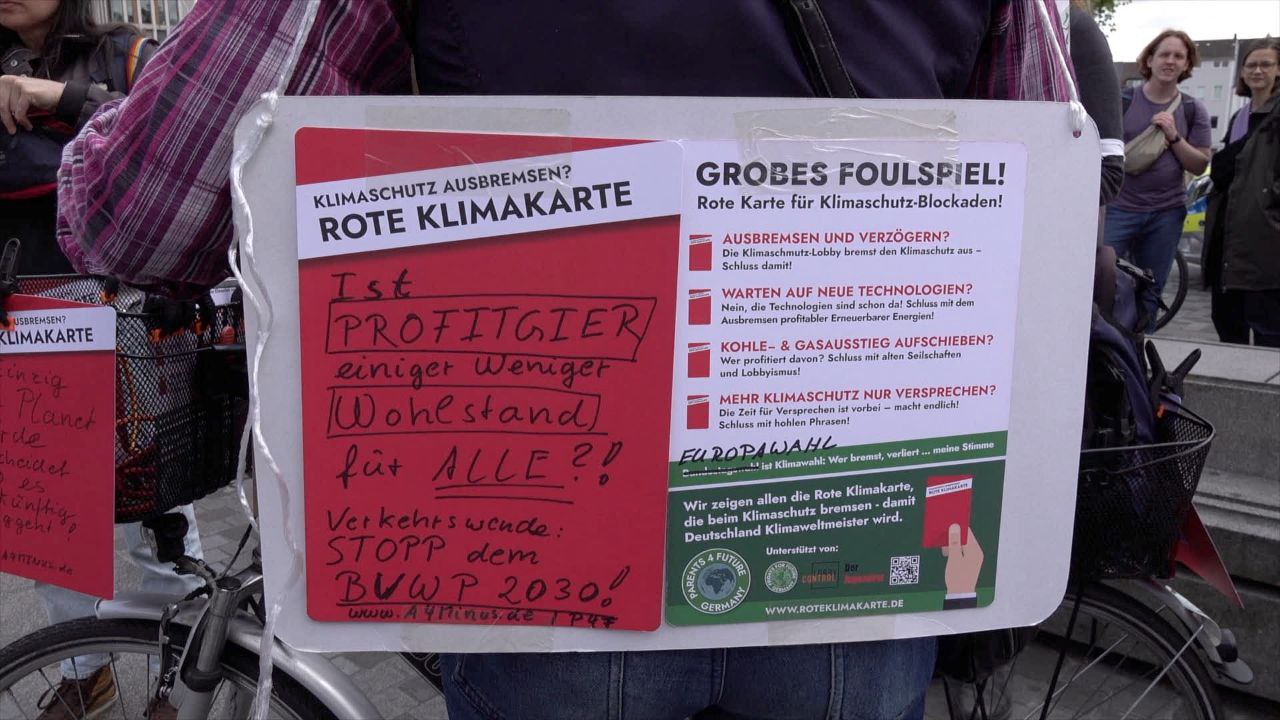 KLIMASCHUTZ AUSBREMSEN?
ROTE KLIMAKARTE
Ist
PROFITGIER
einiger Weniger
Wohlstand
für ALLE?!
Verkehrswende:
STOPP dem
BVWP 2030!
www.A4Minus.de | P47
GROBES FOULSPIEL!
Rote Karte für Klimaschutz-Blockaden!
AUSBREMSEN UND VERZÖGERN?
Die Klimaschmutz-Lobby bremst den Klimaschutz aus –
Schluss damit!
WARTEN AUF NEUE TECHNOLOGIEN?
Nein, die Technologien sind schon da! Schluss mit dem
Ausbremsen profitabler Erneuerbarer Energien!
KOHLE– & GASAUSSTIEG AUFSCHIEBEN?
Wer profitiert davon? Schluss mit alten Seilschaften
und Lobbyismus!
MEHR KLIMASCHUTZ NUR VERSPRECHEN?
Die Zeit für Versprechen ist vorbei – macht endlich!
Schluss mit hohlen Phrasen!
EUROPAWAHL
Bundestagswahl ist Klimawahl: Wer bremst, verliert ... meine Stimme
Wir zeigen allen die Rote Klimakarte,
die beim Klimaschutz bremsen - damit
Deutschland Klimaweltmeister wird.
ROTE KLIMAKARTE
PARENTS 4 FUTURE
GERMANY
Unterstützt von:
CONTROL
Der
WWW.ROTEKLIMAKARTE.DE
USBREMSEN?
KLIMAKARTE
inzig
Planet
rde
cheidet
es
künftig
ggeht!
A4Minus.de